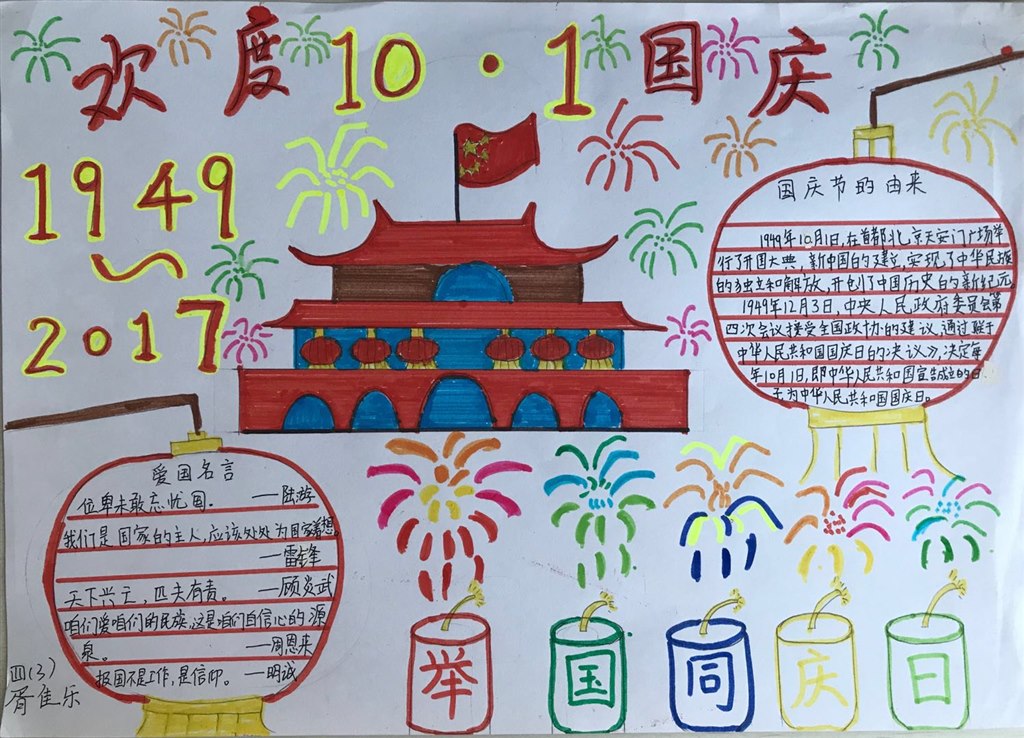 欢度10·1国庆
1949
~
2017
国庆节的由来
1949年10月1日,在首都北京天安门广场举
行了开国大典,新中国的建立,实现了中华民族
的独立和解放,开创了中国历史的新纪元。
1949年12月3日,中央人民政府委员会第
四次会议接受全国政协的建议,通过联于
中华人民共和国国庆日的决议》,决定每
年10月1日,即中华人民共和国宣告成立的日
子,为中华人民共和国国庆日。
爱国名言
位卑未敢忘忧国。 —陆游
我们是国家的主人,应该处处为国家着想。
—雷锋
天下兴亡,匹夫有责。 —顾炎武
咱们爱咱们的民族,这是咱们自信心的源
泉。 —周恩来
报国不是工作,是信仰。 —明诚
四(3)
胥佳乐
举国同庆日